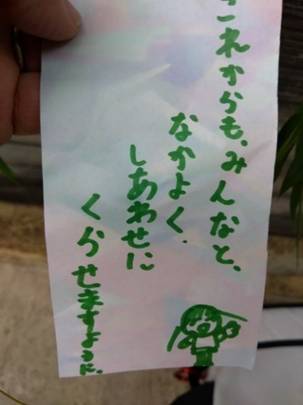 これからも、みんなと、
なかよく、
しあわせに
くらせますように。